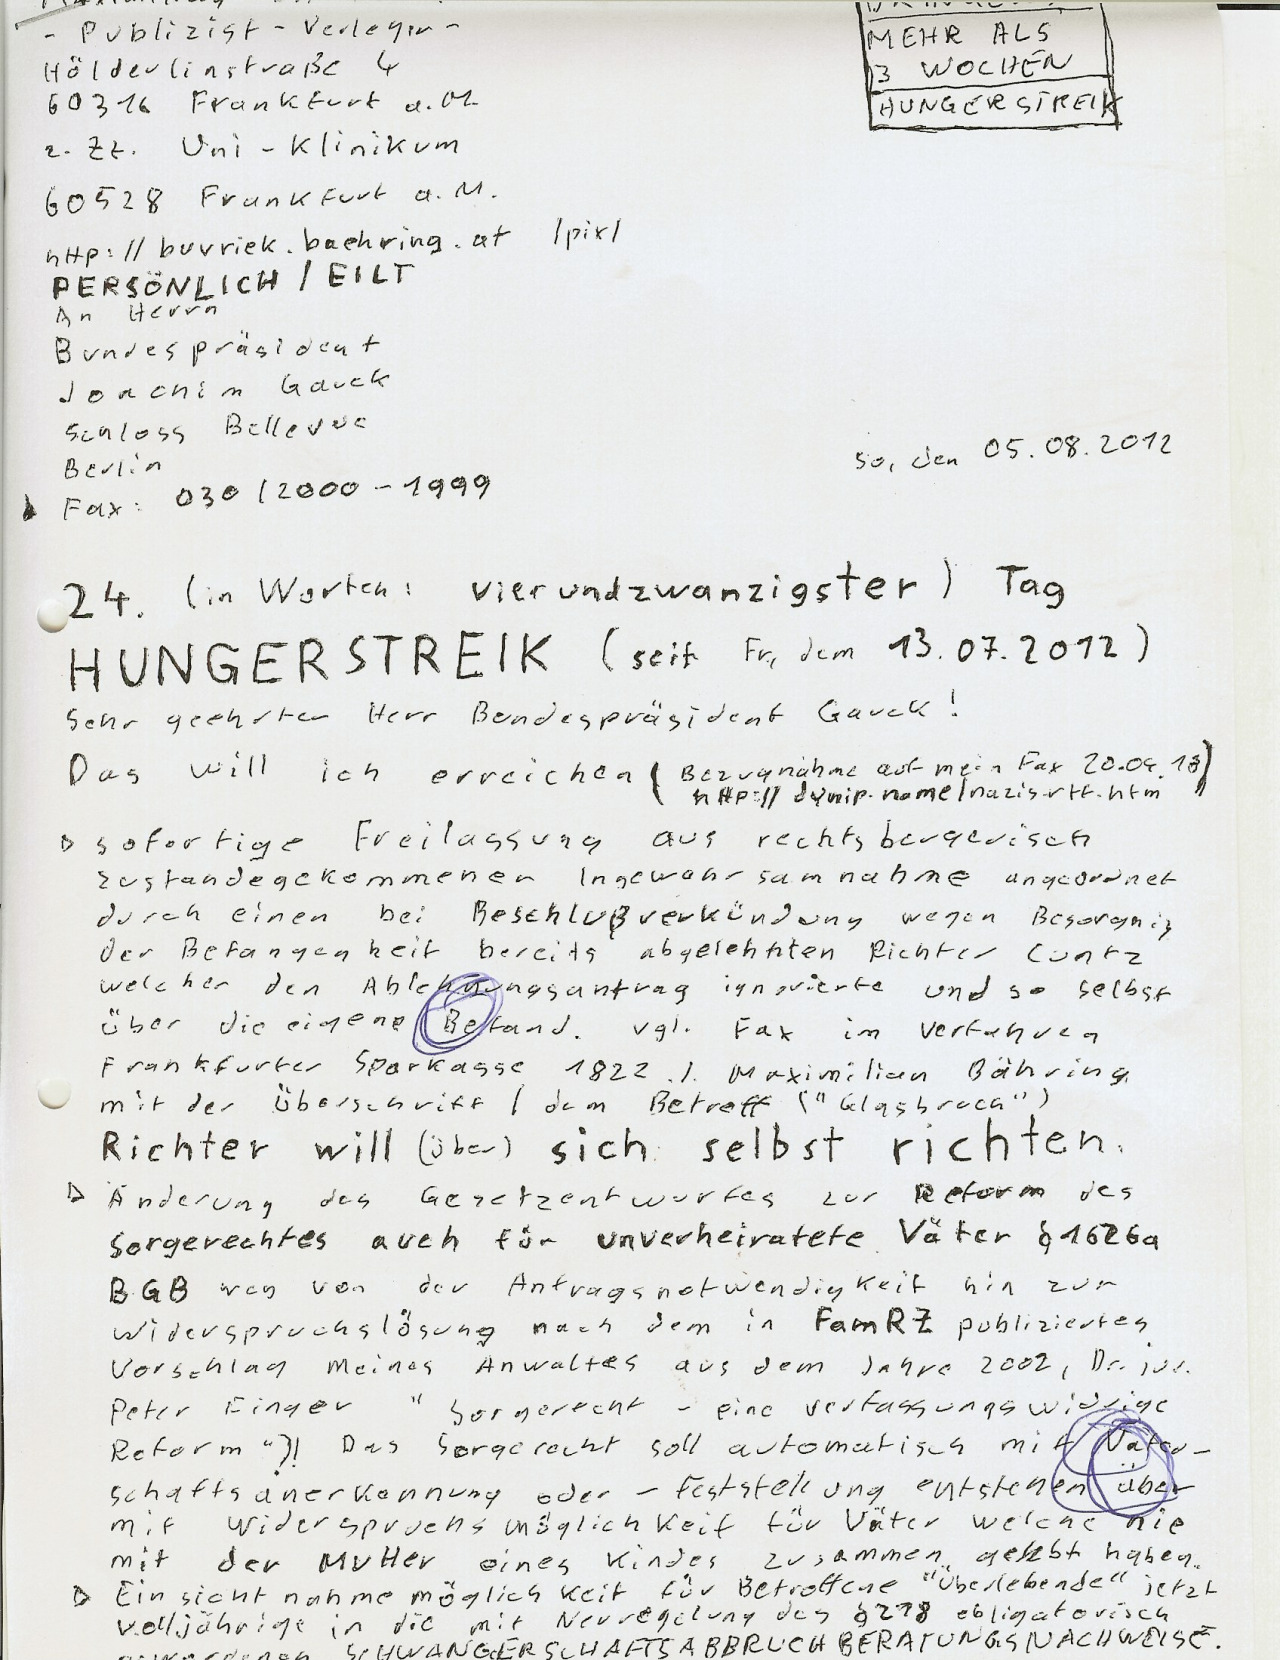 - Publizist - Verleger -
Hölderlinstraße 4
60316 Frankfurt a.M.
z. Zt. Uni-Klinikum
60528 Frankfurt a.M.
http://buvriek.baehring.at /pix/
MEHR ALS
3 WOCHEN
HUNGERSTREIK
PERSÖNLICH / EILT
An Herrn
Bundespräsident
Joachim Gauck
Schloss Bellevue
Berlin
Fax: 030 / 2000 - 1999
So, den 05.08.2012
24. (in Worten: vierundzwanzigster) Tag
HUNGERSTREIK (seit Fr, dem 13.07.2012)
Sehr geehrter Herr Bundespräsident Gauck!
Das will ich erreichen (Bezugnahme auf mein Fax
http://dynip.name/nazis-rtf.htm
sofortige Freilassung aus rechtsbeugerisch
zustandegekommener Ingewahrsamnahme angeordnet
durch einen bei Beschlußverkündung wegen Besorgnis
der Befangenheit bereits abgelehnten Richter Cuntz
welcher den Ablehnungsantrag ignorierte und so selbst
über die eigene Befand. vgl. Fax im Verfahren
Frankfurter Sparkasse 1822 ./. Maximilian Bähring
mit der Überschrift / dem Betreff ("Glasbruch")
Richter will (über) sich selbst richten.
Änderung des Gesetzentwurfes zur Reform des
Sorgerechtes auch für unverheiratete Väter §1626a
BGB weg von der Antragsnotwendigkeit hin zur
Widerspruchslösung nach dem in FamRZ publizierten
Vorschlag meines Anwaltes aus dem Jahre 2002, Dr. jur.
Peter Finger "Sorgerecht - eine verfassungswidrige
Reform"?! Das Sorgerecht soll automatisch mit Vater-
schaftsanerkennung oder - feststellung entstehen über
mit Widerspruchsmöglichkeit für Väter welche nie
mit der Mutter eines Kindes zusammen gelebt haben.
Einsichtnahmemöglichkeit für Betroffene "Überlebende" jetzt
volljährige in die mit Neuregelung des §218 obligatorisch
gewordenen SCHWANGERSCHAFTSABBRUCHBERATUNGSNACHWEISE.